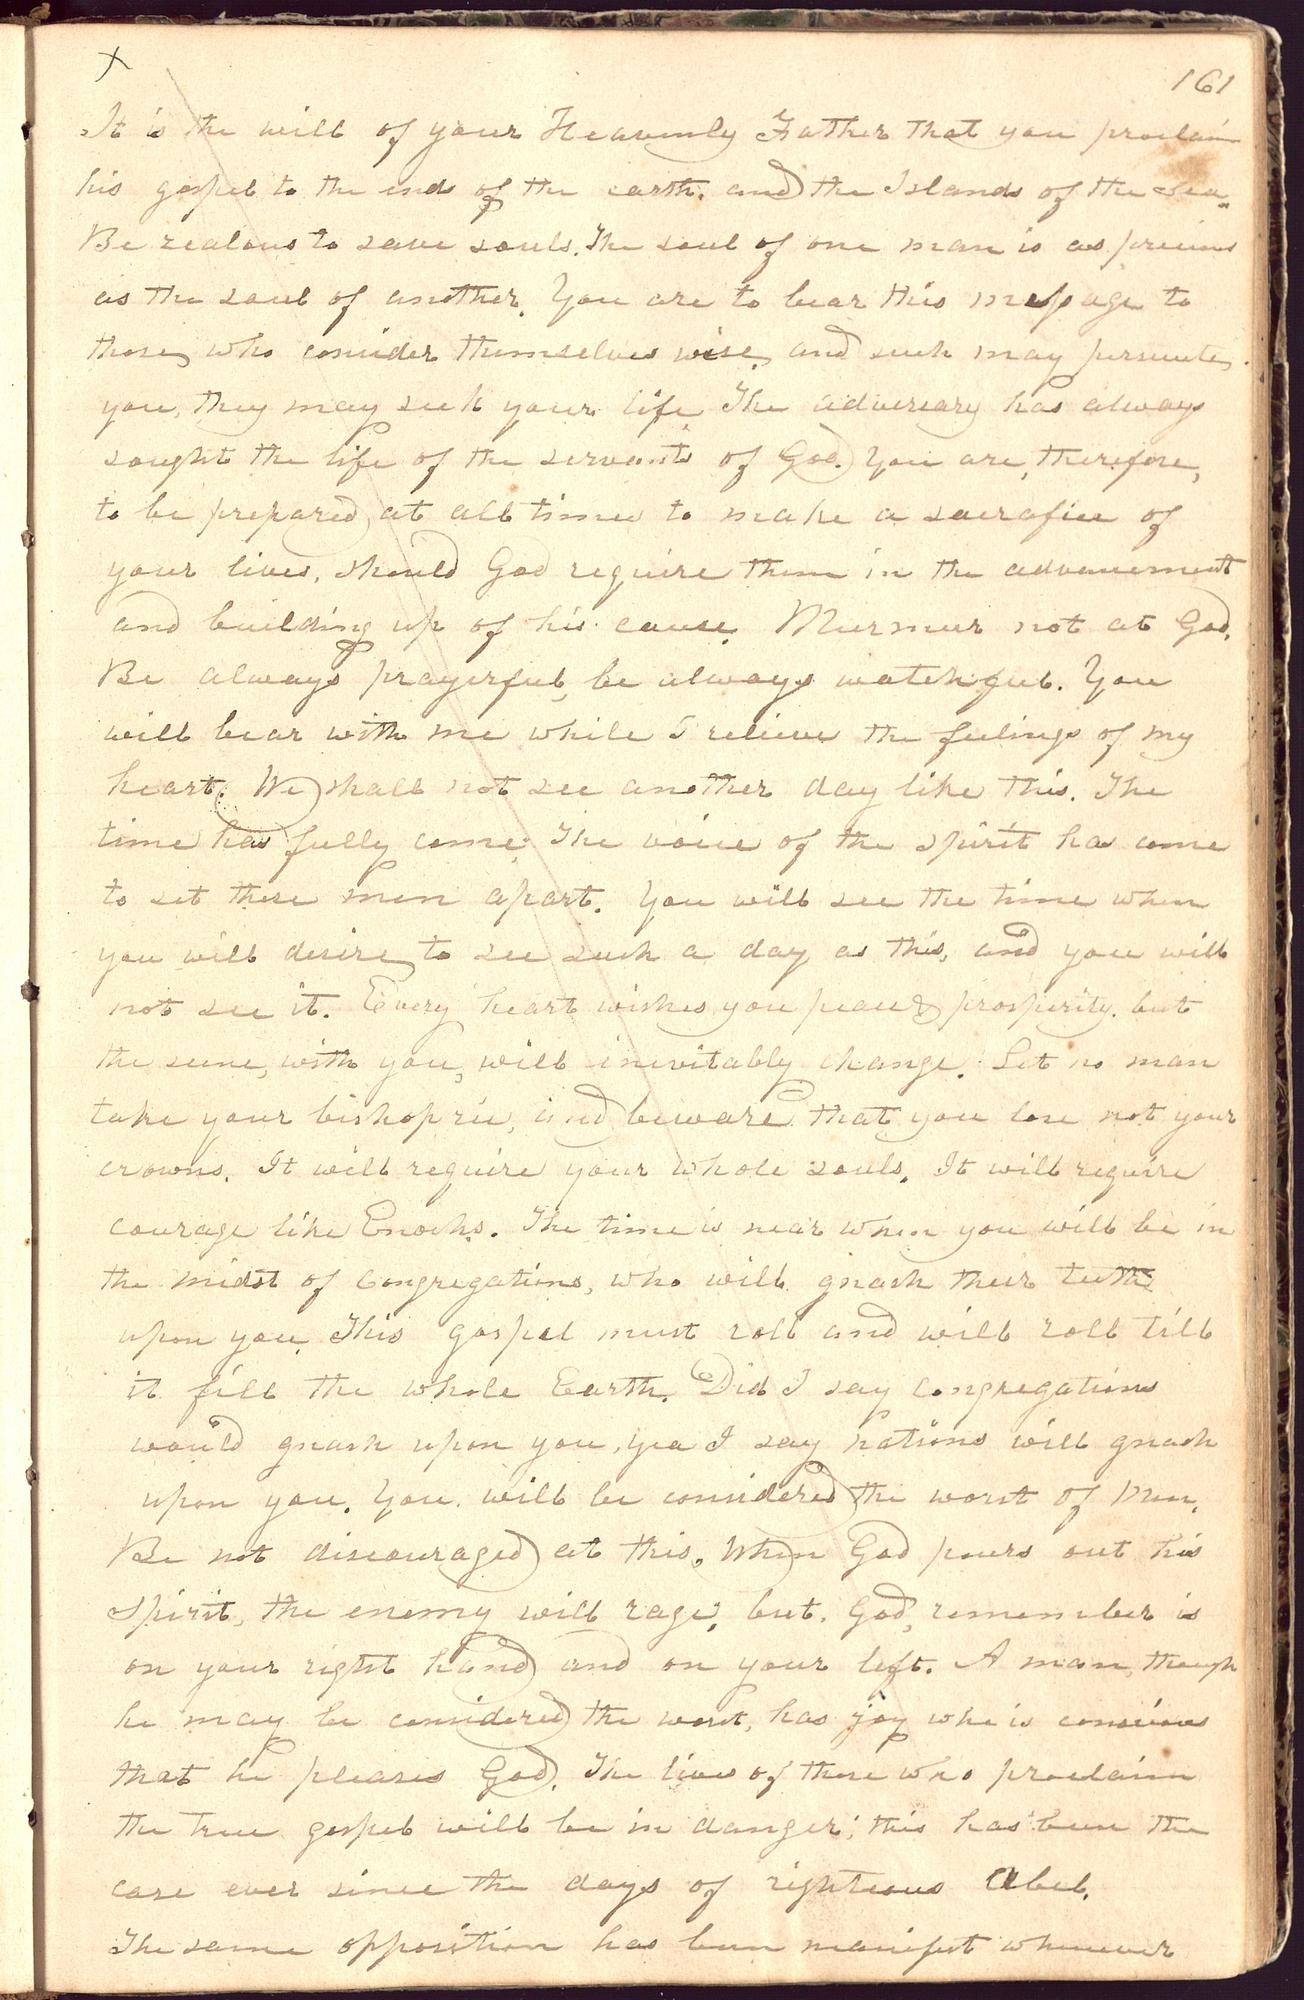 X
161
It is the will of your Heavenly Father that you proclaim
his gospel to the ends of the earth, and the Islands of the Sea.
Be zealous to save souls. The soul of one man is as precious
as the soul of another. You are to bear this message to
those, who consider themselves wise, and such may persecute,
you, they may seek your life. The adversary has always
sought the life of the servants of God. You are, therefore,
to be prepared at all times to make a sacrafice of
your lives, should God require them in the advancement
and building up of his cause. Murmur not at God.
Be always prayerful, be always watchful. You
will bear with me while I relieve the feelings of my
heart. We shall not see another day like this. The
time has fully come. The voice of the spirit has come
to set these men apart. You will see the time when
you will desire to see such a day as this, and you will
not see it. Every heart wishes you peace & prosperity, but
the scene, with you, will inevitably change. Let no man
take your bishopric, and beware that you lose not your
crowns. It will require your whole souls. It will require
courage like Enochs. The time is near when you will be in
the midst of Congregations, who will gnash their teeth
upon you. This gospel must roll and will roll till
it fill the whole Earth. Did I say Congregations
would gnash upon you, yea I say nations will gnash
upon you. You will be considered the worst of Men.
Be not discouraged at this. When God pours out his
Spirit, the enemy will rage, but, God, remember is
on your right hand and on your left. A man, though
he may be considered the worst, has joy who is conscious
that he pleases God. The lives of those who proclaim
the true gospel will be in danger; this has been the
case ever since the days of righteous Abel.
The same opposition has been manifest whenever